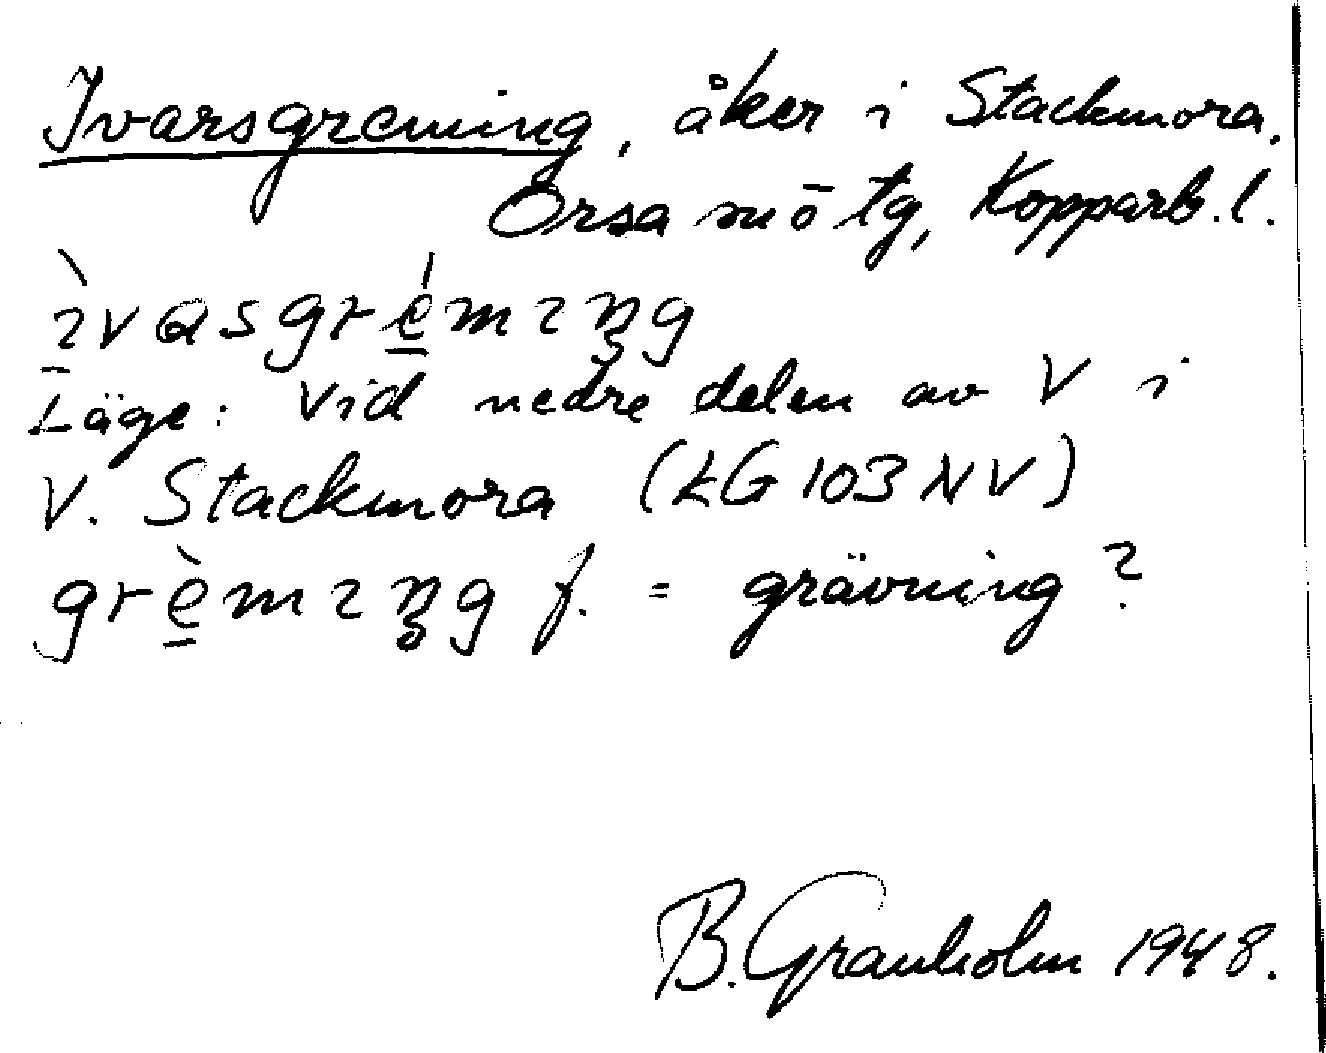 Ivarsgreming, åker i Stackmora.
Orsa sn ö tg, Kopparb. l.
ìvasgrémıŋg
Läge: Vid nedre delen av V i
V. Stackmora (LG 103 NV)
grèmıŋg f. = grävning?
B. Granholm 1948.